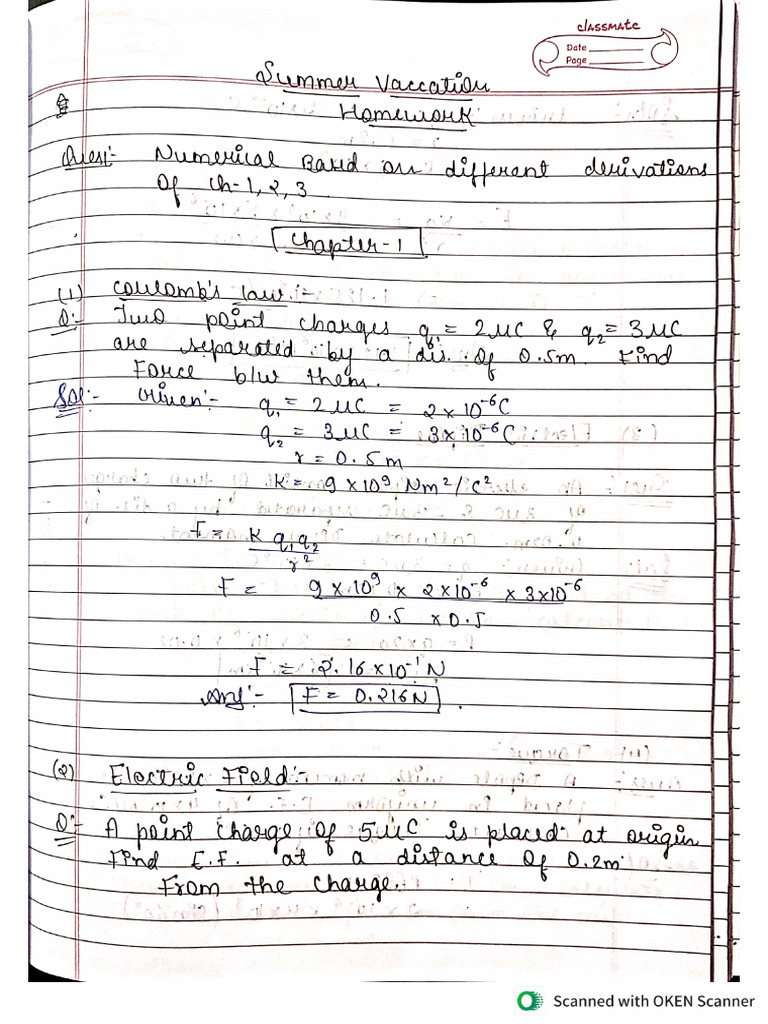 classmate
Date
Page
Summer Vaccation
Homework
Ques:- Numerical Based on different derivations
Of Ch-1, 2, 3
Chapter-1
(1) Coulomb's law :-
Q:- Two point charges q₁ = 2 μC & q₂ = 3 μC
are separated by a dis. Of 0.5m. Find
Force b/w them.
Sol:- Given:- q₁ = 2 μC = 2 × 10⁻⁶ C
q₂ = 3 μC = 3 × 10⁻⁶ C
r = 0.5 m
K = 9 × 10⁹ Nm²/C²
F = K q₁q₂
r²
F = 9 × 10⁹ × 2×10⁻⁶ × 3×10⁻⁶
0.5 × 0.5
F = 2.16 × 10⁻¹ N
Ans:- F = 0.216N
(2) Electric Field:-
Q:- A point charge Of 5 μC is placed at origin
Find E.F. at a distance Of 0.2m
From the charge.
Scanned with OKEN Scanner